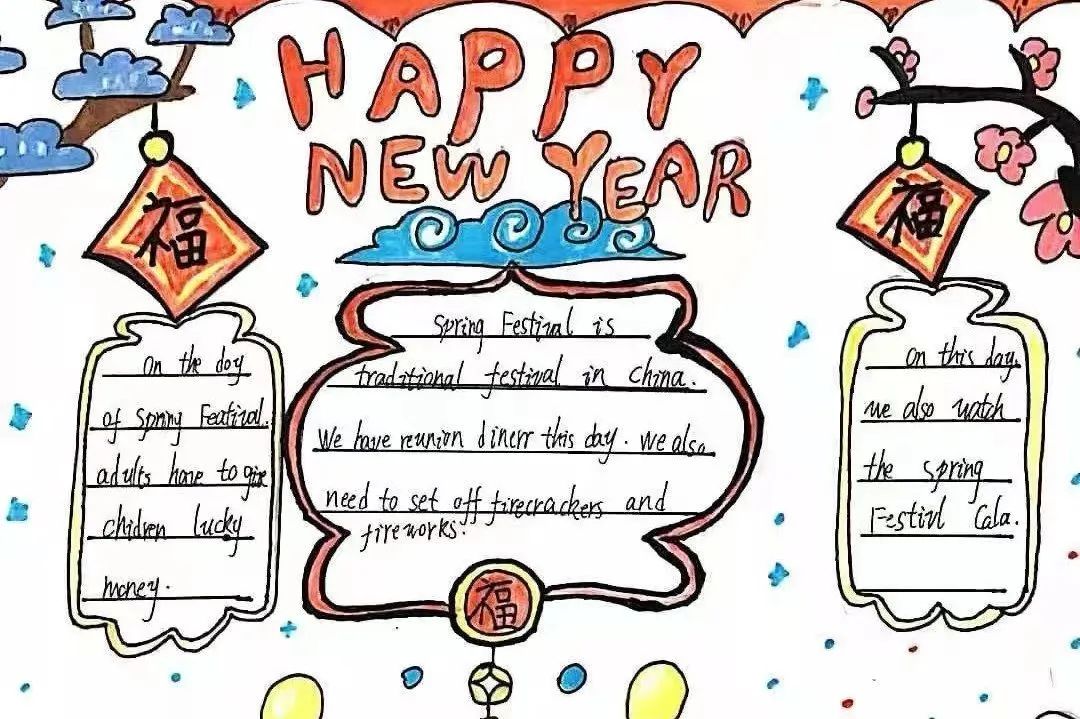 HAPPY
NEW YEAR
福
福
on the day
of Spring Featival.
adults have to give
chidren lucky
money.
Spring Festival is
traditional festival in China.
We have reunion dinerr this day. we also
need to set off firecrackers and
fireworks.
福
on this day.
we also watch
the spring
Festivl Gala.